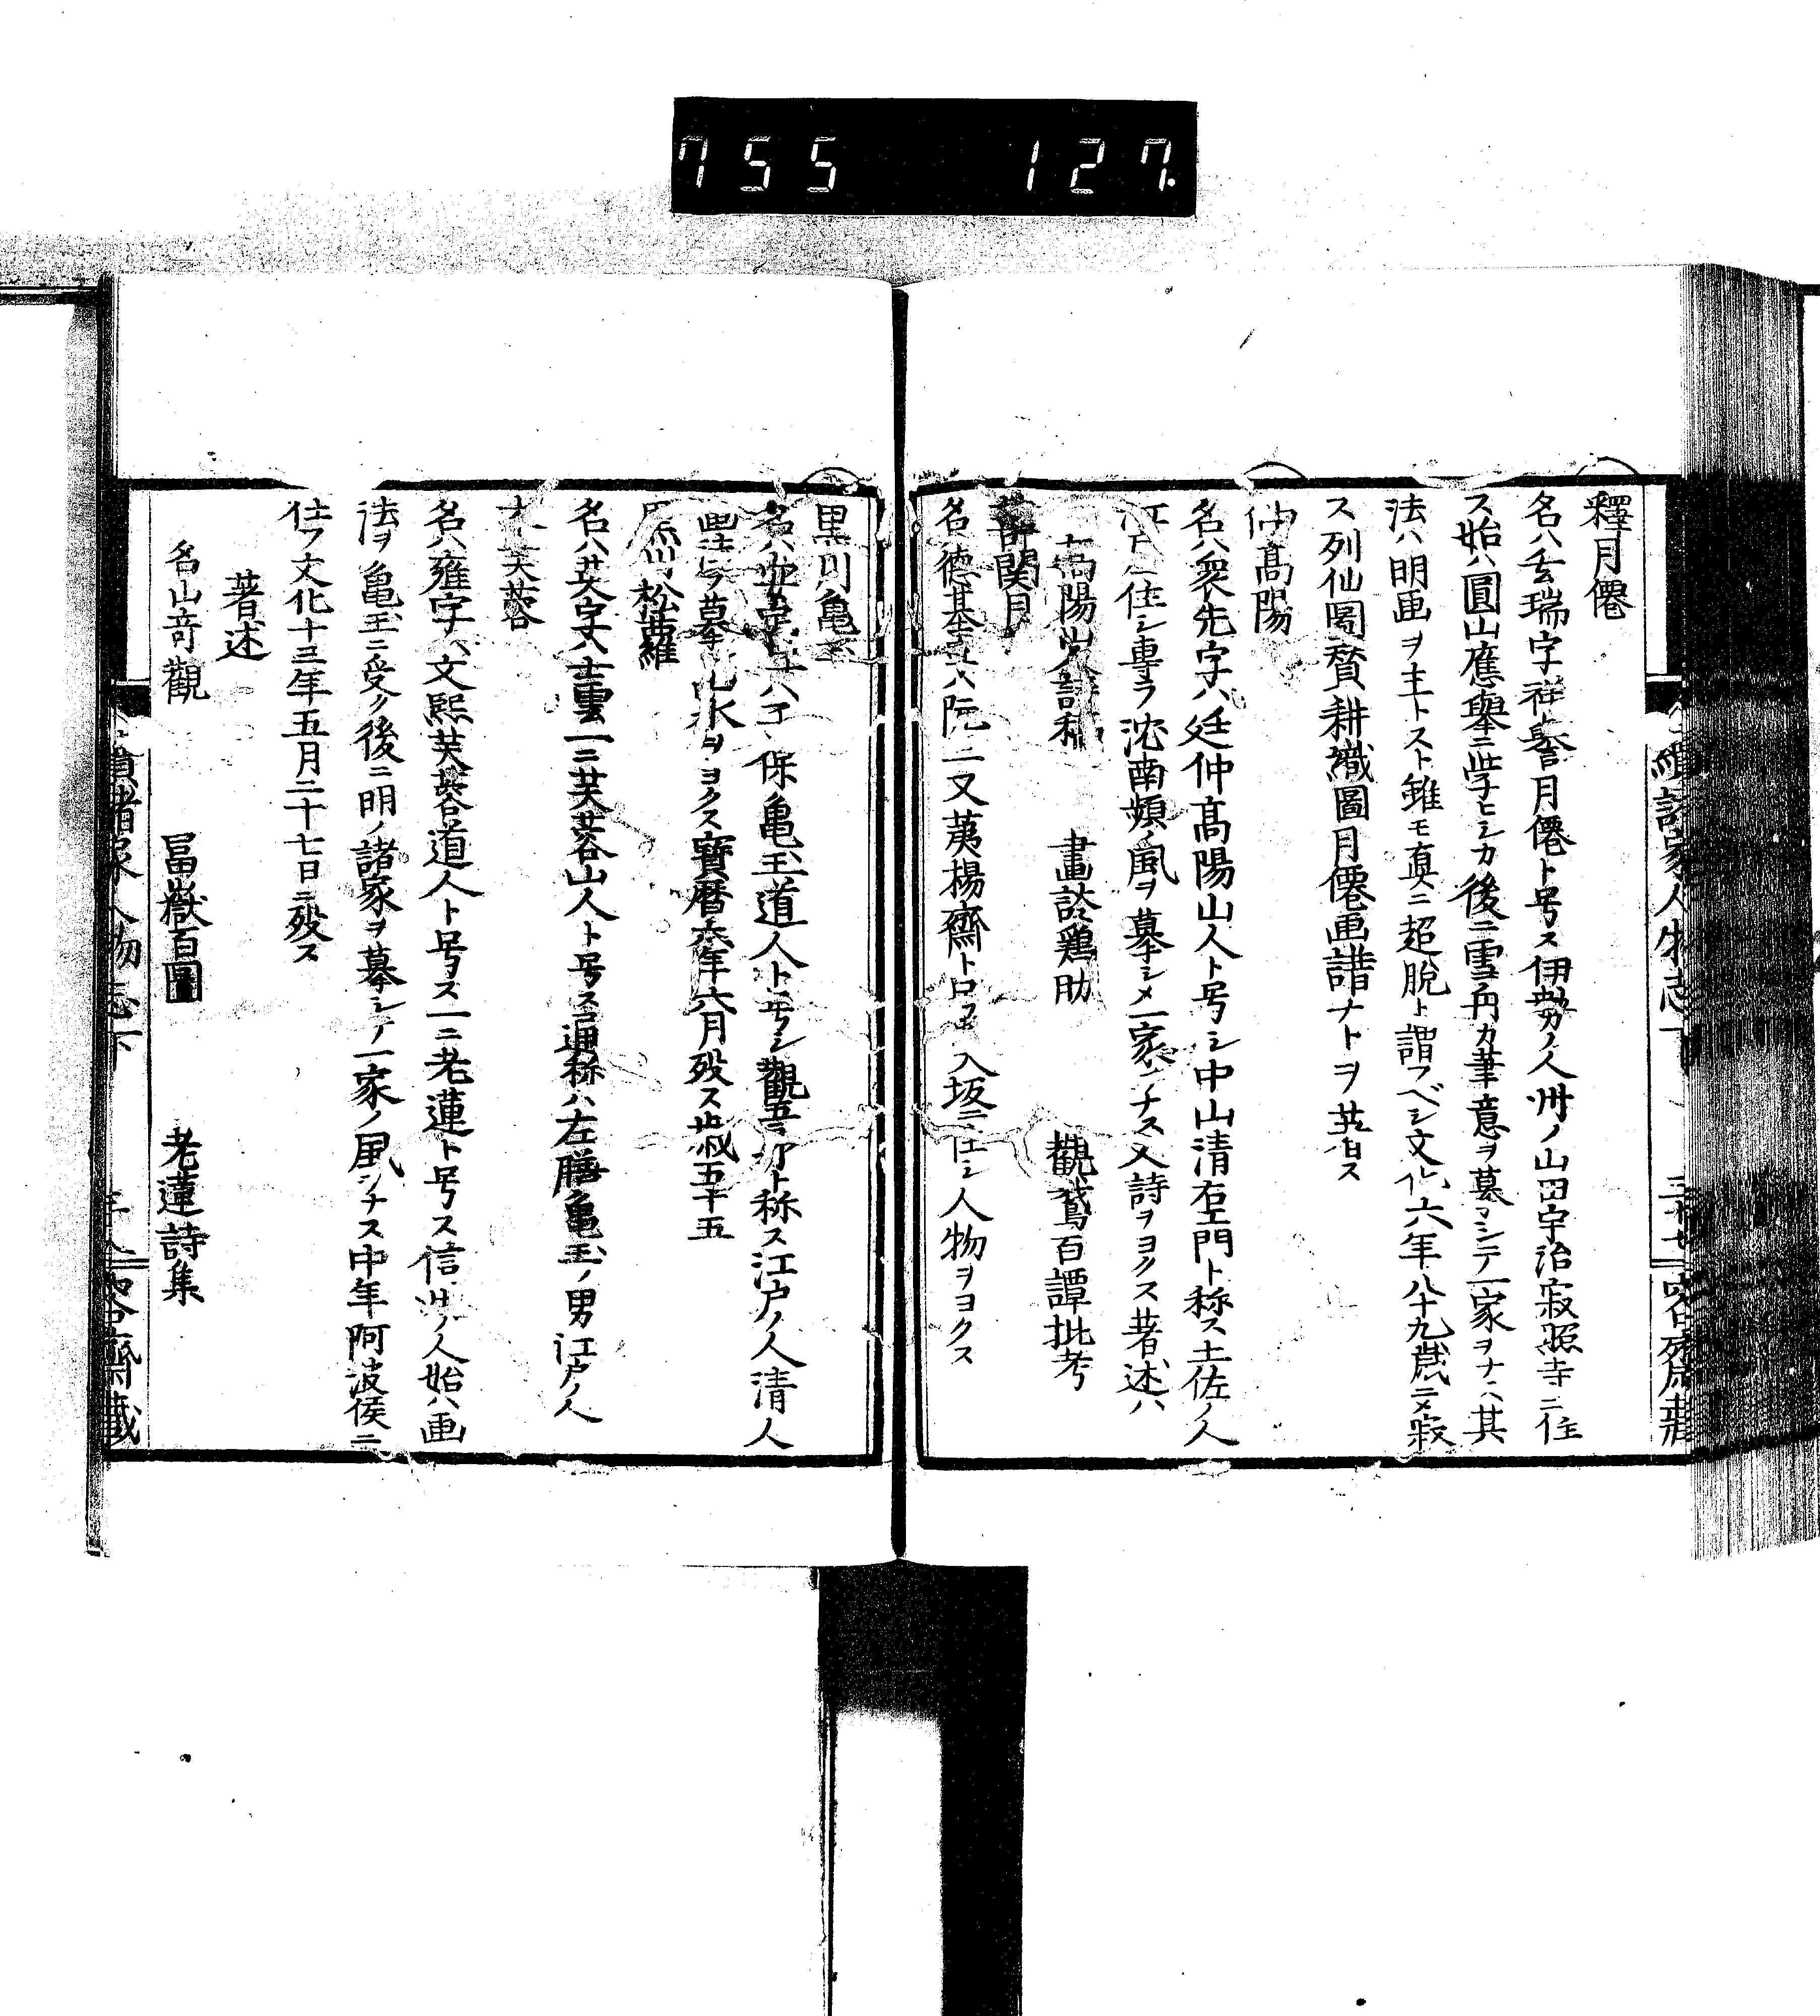 755 127.
續諸家人物志下
釋月僊
名ハ玄瑞字祥譽月僊ト号ス伊勢ノ人州ノ山田宇治寂照寺ニ住
ス始ハ圓山應擧ニ学ヒシカ後ニ雪舟カ筆意ヲ墓シテ一家ヲナス其
法ハ明画ヲ主トスト雖モ真ニ超脱ト謂フベシ文化六年八十九歳ニメ寂
ス列仙圖賛耕織圖月僊画譜ナトヲ著ス
仲髙陽
名ハ象先字ハ廷仲髙陽山人ト号シ中山清右エ門ト称ス土佐ノ人
江戸ニ住シ専ラ沈南頻ノ風ヲ墓シメ一家ヲナス又詩ヲヨクス著述ハ
髙陽山人詩稿 畫譚鶏肋 觀鵞百譚批考
蔀関月
名ハ德基字ハ 又荑楊齋ト 坂ニ住シ人物ヲヨクス
黒川亀玉
名ハ安定字ハ 保亀玉道人ト号シ 称ス江戸ノ人清人
画法ヲ墓 山水ヲヨクス寶暦六年六月歿ス歳五十五
黒川松蘿
名ハ其字ハ士雲一ニ芙蓉山人ト号ス通称ハ左膳亀玉ノ男江戸ノ人
木芙蓉
名ハ雍字ハ文熙芙蓉道人ト号ス一ニ老蓮ト号ス信州ノ人始ハ画
法ヲ亀玉ニ受ク後ニ明ノ諸家ヲ墓シテ一家ノ風ヲナス中年阿波侯ニ
仕フ文化十三年五月二十七日ニ歿ス
著述
名山竒觀 冨嶽百圖 老蓮詩集
續諸家人物志下 齋藏